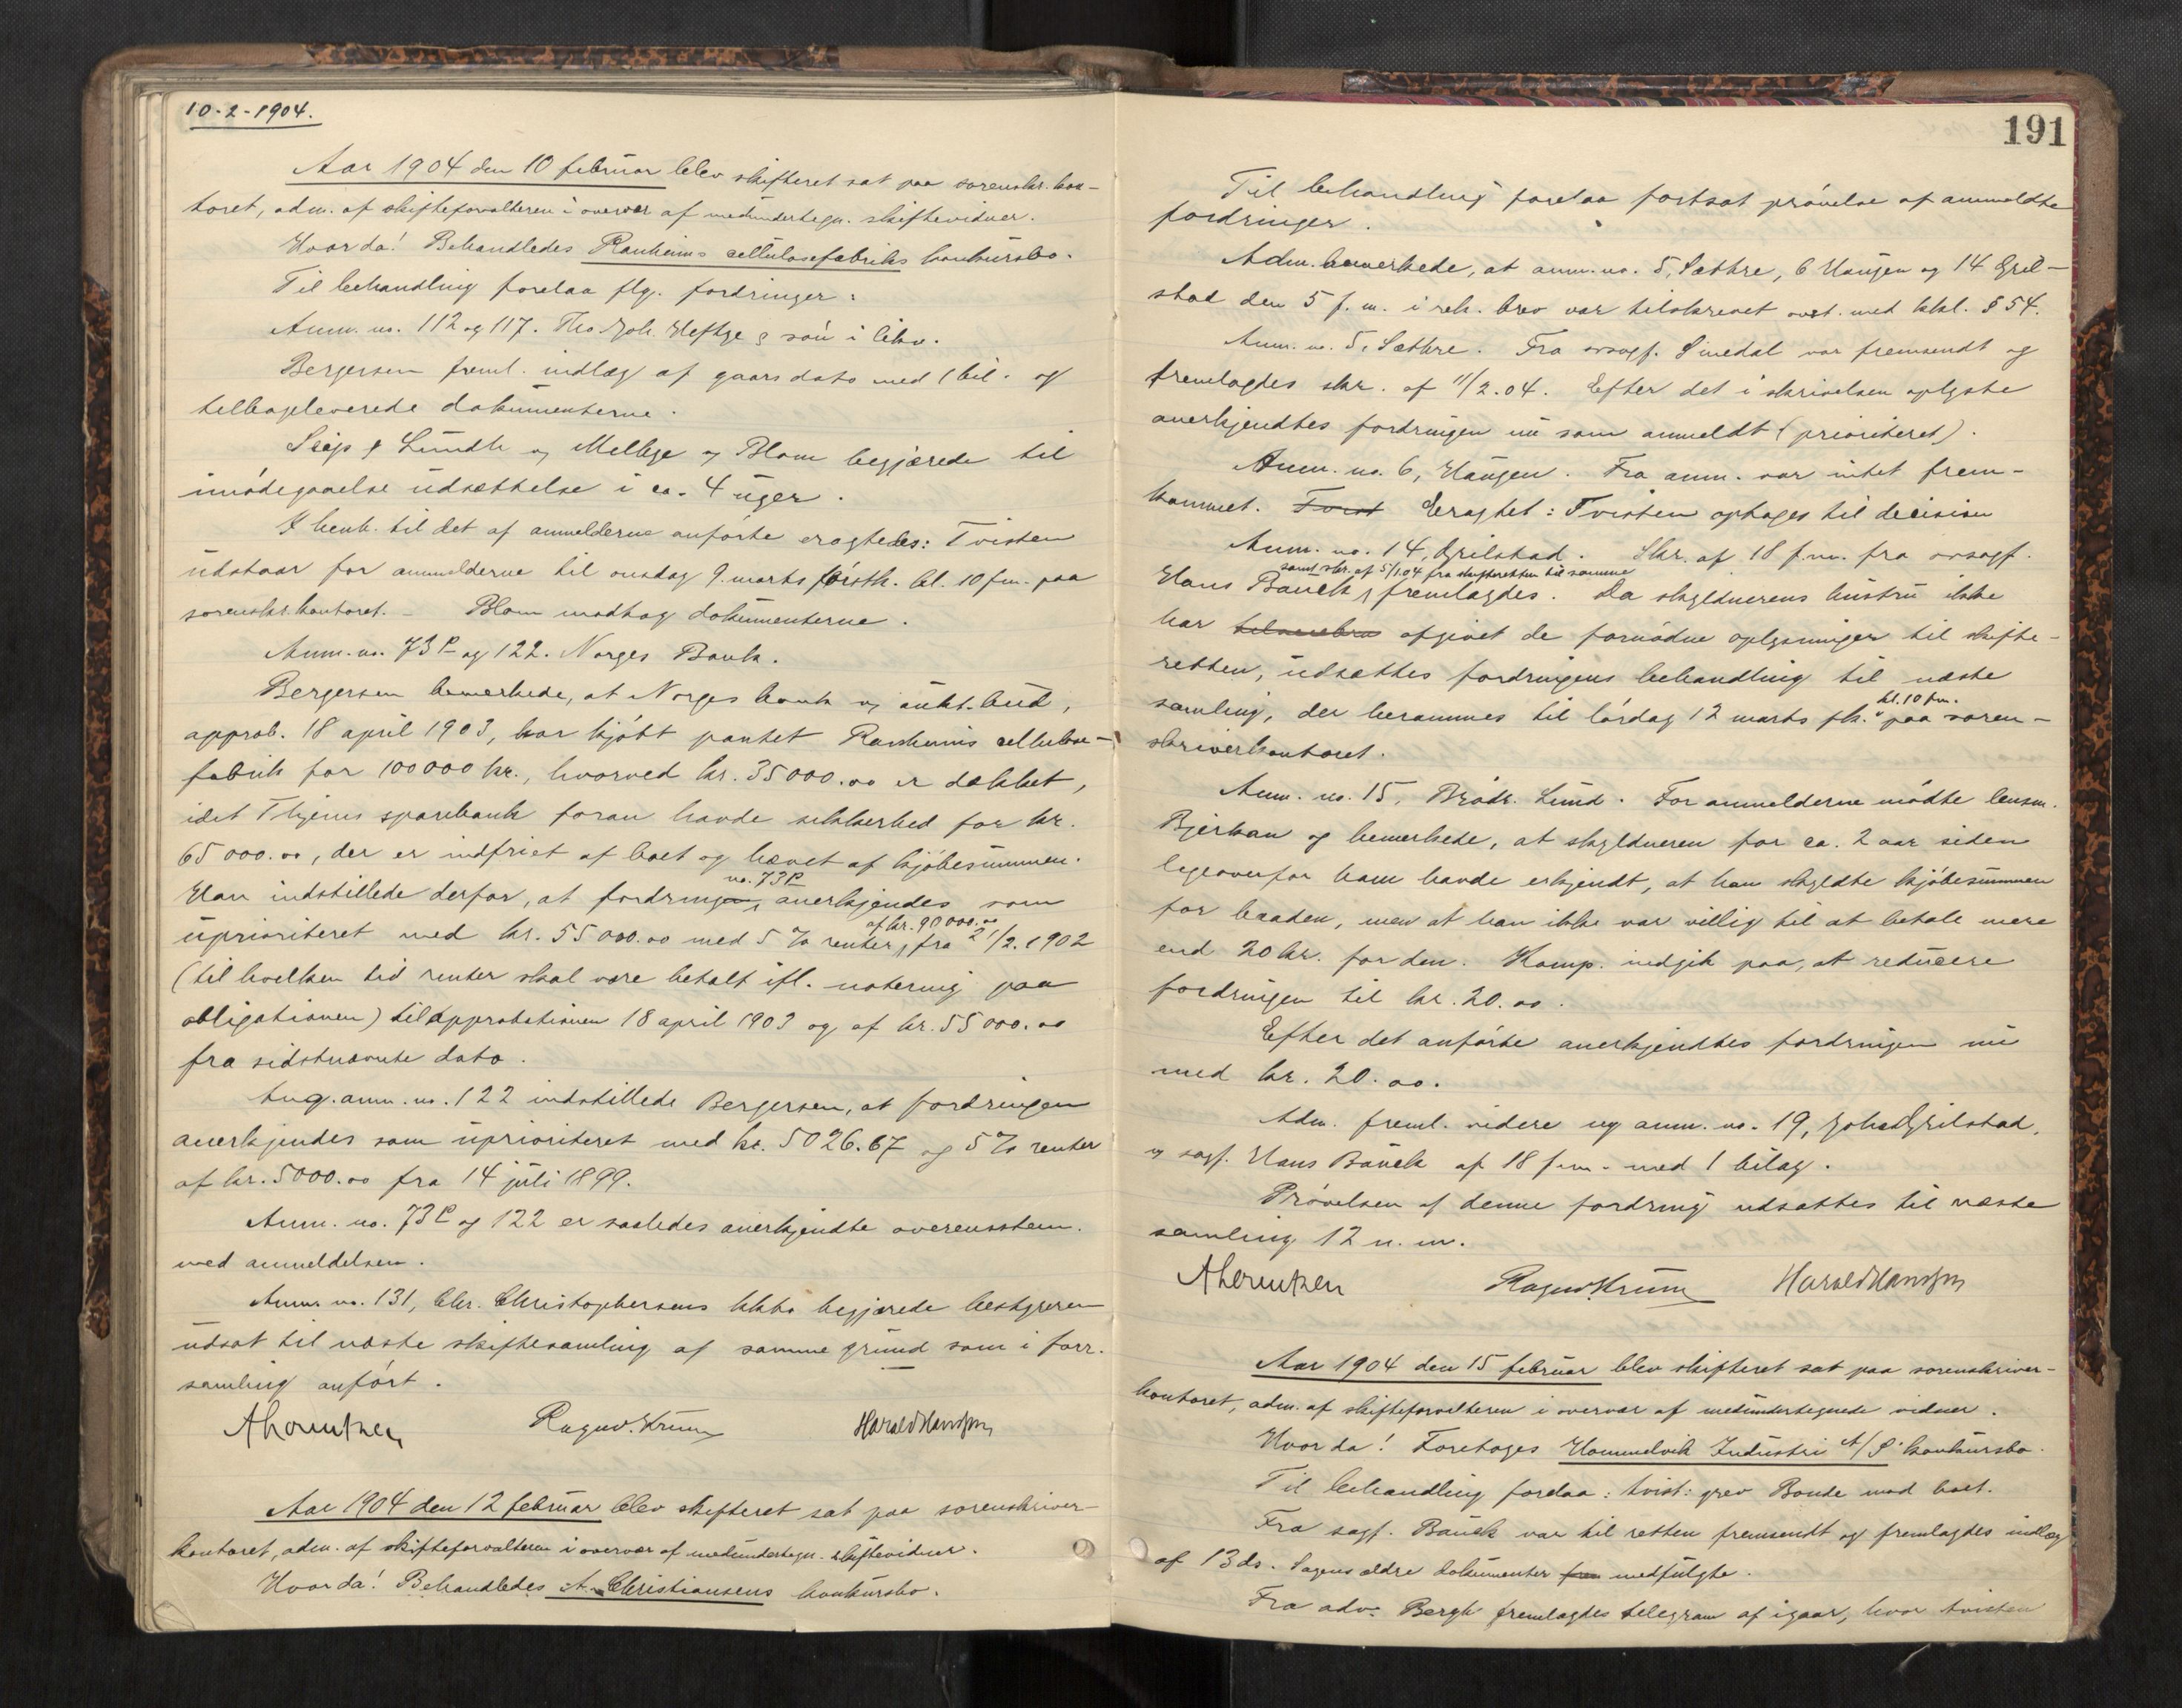 10-2-1904.
Aar 1904 den 10 februar blev skifteret sat paa sorenskr.kon-
toret, adm. af skifteforvalteren i overvær af medundertegn. skiftevidner.
Hvorda! Behandledes Ranheims cellulosefabriks konkursbo.
Til behandling forelaa flg. fordringer:
Anm. no. 112 og 117. Tho Joh. Heftye & søn i likv.
Bergersen freml. indlæg af gaars dato med 1 bil. og
tilbageleverede dokumenterne.
& Lundh og Melbye og Blom begjærede til
imødegaaelse udsættelse i ca. 4 uger.
I henh. til det af anmelderne anførte eragtedes: Tvisten
udstaar for anmelderne til onsdag 9. marts førstk. kl. 10 fm. paa
sorenskr.kontoret. - Blom modtog dokumenterne.
Anm. no. 73 P og 122. Norges Bank.
Bergersen bemerkede, at Norges bank v. aukt.bud,
approb. 18 april 1903, har kjøbt pantet Ranheims cellulose-
fabrik for 100000 kr., hvorved kr. 35000.00 er dækket,
idet Thjems sparebank foran havde sikkerhed for kr.
65000.00, der er indfriet af boet og hævet af kjøbesummen.
no. 73 P
Han indstillede derfor, at fordringen anerkjendes som
af kr. 90000.00
uprioriteret med kr. 55000.00 med 5 % renter, fra 21/2.1902
(til hvilken tid renter skal være betalt ifl. notering paa
obligationen) til approbationen 18 april 1903 og af kr. 55000.00
fra sidstnævnte dato.
Ang. anm. no. 122 indstillede Bergersen, at fordringen
anerkjendes som uprioriteret med kr. 5026.67 og 5 % renter
af kr. 5000.00 fra 14 juli 1899.
Anm. no. 73 P og 122 er saaledes anerkjendte overensstem.
med anmeldelsen.
Anm. no. 131, Chr. Christophersens kkbo begjærede bestyreren
udsat til næste skiftesamling af samme grund som i forr.
samling anført.
Ragnv. Krum Harald Hansen
Aar 1904 den 12 februar blev skifteret sat paa sorenskriver-
kontoret, adm. af skifteforvalteren i overvær af medundertegn. skiftevidner.
Hvorda! Behandledes A. Christiansens konkursbo.
191
Til behandling forelaa fortsat prøvelse af anmeldte
fordringer.
Adm. bemerkede, at anm. no. 5, Sæthre, 6 Haugen og 14 Gril-
stad den 5 f.m. i rek. brev var tilskrevet ovst. med kkl. § 54.
Anm. no. 5, Sæthre. Fra ovsagf. Smedal var fremsendt og
fremlagdes skr. af 11/2.04. Efter det i skrivelsen oplyste
anerkjendtes fordringen nu som anmeldt (prioriteret).
Anm. no. 6, Haugen. Fra anm. var intet frem-
kommet. Tvist Eragtet: Tvisten optages til decision
Anm. no. 14, Grilstad. Skr. af 18 f.m. fra ovsagf.
samt skr. af 5/1.04 fra skifteretten til samme
Hans Bauck, fremlagdes. Da skyldnerens hustru ikke
har afgivet de fornødne oplysninger til skifte-
retten, udsættes fordringens behandling til næste
kl. 10 fm.
samling, der berammes til lørdag 12 marts fk. paa soren-
skriverkontoret.
Anm. no. 15, Brødr. Lund. For anmelderne mødte lensm.
Bjerkan og bemerkede, at skyldneren for ca. 2 aar siden
ligeoverfor ham havde erkjendt, at han skyldte kjøbesummen
for baaden, men at han ikke var villig til at betale mere
end 20 kr. for den. Komp. indgik paa, at reducere
fordringen til kr. 20.00.
Efter det anførte anerkjendtes fordringen nu
med kr. 20.00.
Adm. freml. videre ny anm. no. 19, Johs Grilstad,
v. sagf. Hans Bauck af 18 f.m. med 1 bilag.
Prøvelsen af denne fordring udsattes til næste
samling 12 n.m.
Ragnv. Krum Harald Hansen
Aar 1904 den 15 februar blev skifteret sat paa sorenskriver-
kontoret, adm. af skifteforvalteren i overvær af medundertegnede vidner.
Hvorda! Foretoges Hommelvik Industri A/S konkursbo.
Til behandling forelaa: tvist: grev Bonde mod boet.
Fra sagf. Bauck var til retten fremsendt og fremlagdes indlæg
af 13 ds. Sagens ældre dokumenter medfulgte.
Fra adv. Bergh fremlagdes telegram af igaar, hvor tvisten